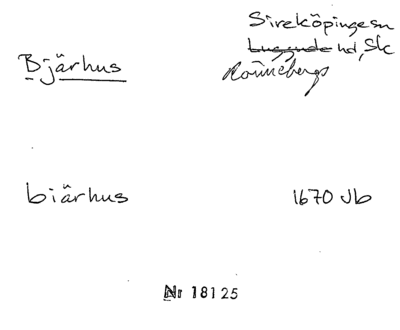 Bjärhus
Sireköpinge sn
Luggude hd, Sk
Rönnebergs
biärhus
1670 Jb
Nr 18125